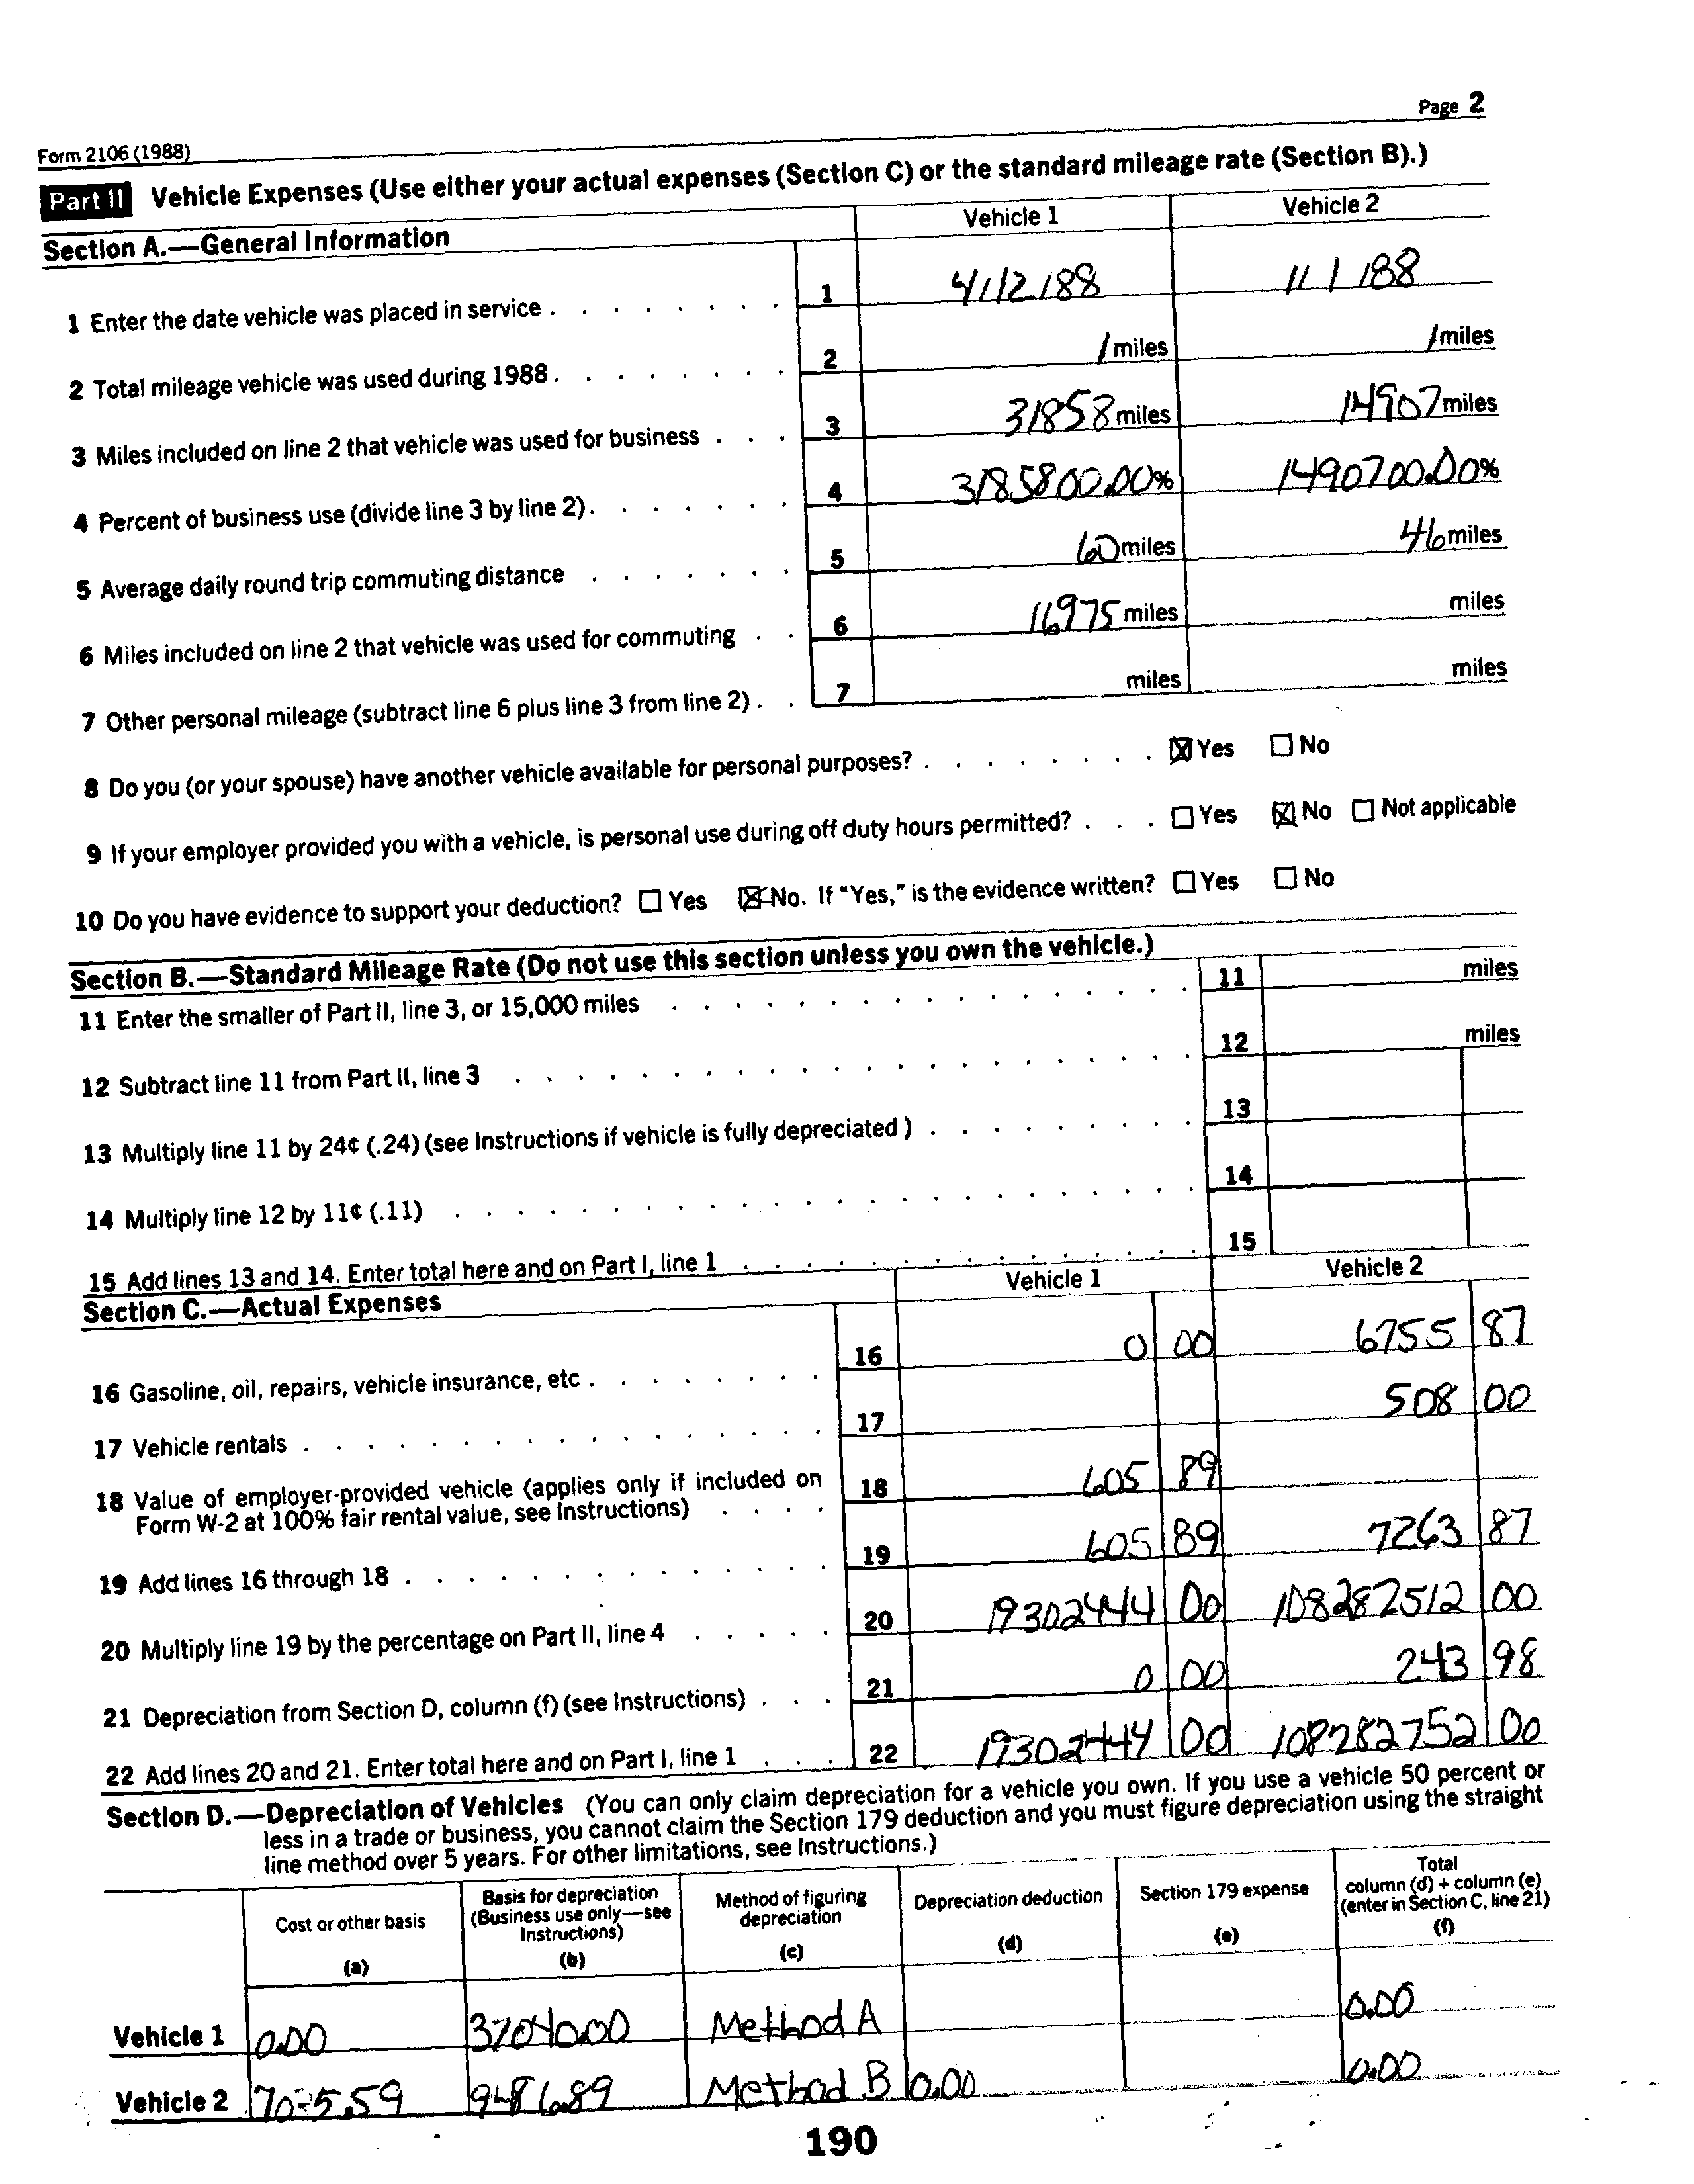 Page 2
Form 2106 (1988)
Part II Vehicle Expenses (Use either your actual expenses (Section C) or the standard mileage rate (Section B).)
Section A.—General Information Vehicle 1 Vehicle 2
1 Enter the date vehicle was placed in service . . . . . . . . 1 4/12/88 1/1/88
2 Total mileage vehicle was used during 1988 . . . . . . . . 2 1 miles 1 miles
3 Miles included on line 2 that vehicle was used for business . . . 3 31858 miles 14907 miles
4 Percent of business use (divide line 3 by line 2) . . . . . . . 4 3185800.00% 1490700.00%
5 Average daily round trip commuting distance . . . . . . . 5 60 miles 46 miles
6 Miles included on line 2 that vehicle was used for commuting . . 6 16975 miles miles
7 Other personal mileage (subtract line 6 plus line 3 from line 2) . . 7 miles miles
8 Do you (or your spouse) have another vehicle available for personal purposes? . . . . . . . . ☒ Yes ☐ No
9 If your employer provided you with a vehicle, is personal use during off duty hours permitted? . . . ☐ Yes ☒ No ☐ Not applicable
10 Do you have evidence to support your deduction? ☐ Yes ☒ No. If "Yes," is the evidence written? ☐ Yes ☐ No
Section B.—Standard Mileage Rate (Do not use this section unless you own the vehicle.)
11 Enter the smaller of Part II, line 3, or 15,000 miles . . . . . . . . . . . . . . . . 11 miles
12 Subtract line 11 from Part II, line 3 . . . . . . . . . . . . . . . . . . . . . 12 miles
13 Multiply line 11 by 24¢ (.24) (see Instructions if vehicle is fully depreciated) . . . . . . . . . 13
14 Multiply line 12 by 11¢ (.11) . . . . . . . . . . . . . . . . . . . . . . . 14
15 Add lines 13 and 14. Enter total here and on Part I, line 1 . . . . . . . . . . . . . . . 15
Section C.—Actual Expenses Vehicle 1 Vehicle 2
16 Gasoline, oil, repairs, vehicle insurance, etc . . . . . . . . 16 0 00 6755 87
17 Vehicle rentals . . . . . . . . . . . . . . . . . 17 508 00
18 Value of employer-provided vehicle (applies only if included on
Form W-2 at 100% fair rental value, see Instructions) . . . . 18 605 89
19 Add lines 16 through 18 . . . . . . . . . . . . . . 19 605 89 7263 87
20 Multiply line 19 by the percentage on Part II, line 4 . . . . . 20 19302444 00 108282512 00
21 Depreciation from Section D, column (f) (see Instructions) . . . 21 0 00 243 98
22 Add lines 20 and 21. Enter total here and on Part I, line 1 . . . 22 19302444 00 108282752 00
Section D.—Depreciation of Vehicles (You can only claim depreciation for a vehicle you own. If you use a vehicle 50 percent or
less in a trade or business, you cannot claim the Section 179 deduction and you must figure depreciation using the straight
line method over 5 years. For other limitations, see Instructions.)
Cost or other basis (a)
Basis for depreciation (Business use only—see Instructions) (b)
Method of figuring depreciation (c)
Depreciation deduction (d)
Section 179 expense (e)
Total column (d) + column (e) (enter in Section C, line 21) (f)
Vehicle 1 0.00 Method A 0.00
Vehicle 2 Method B 0.00 0.00
190